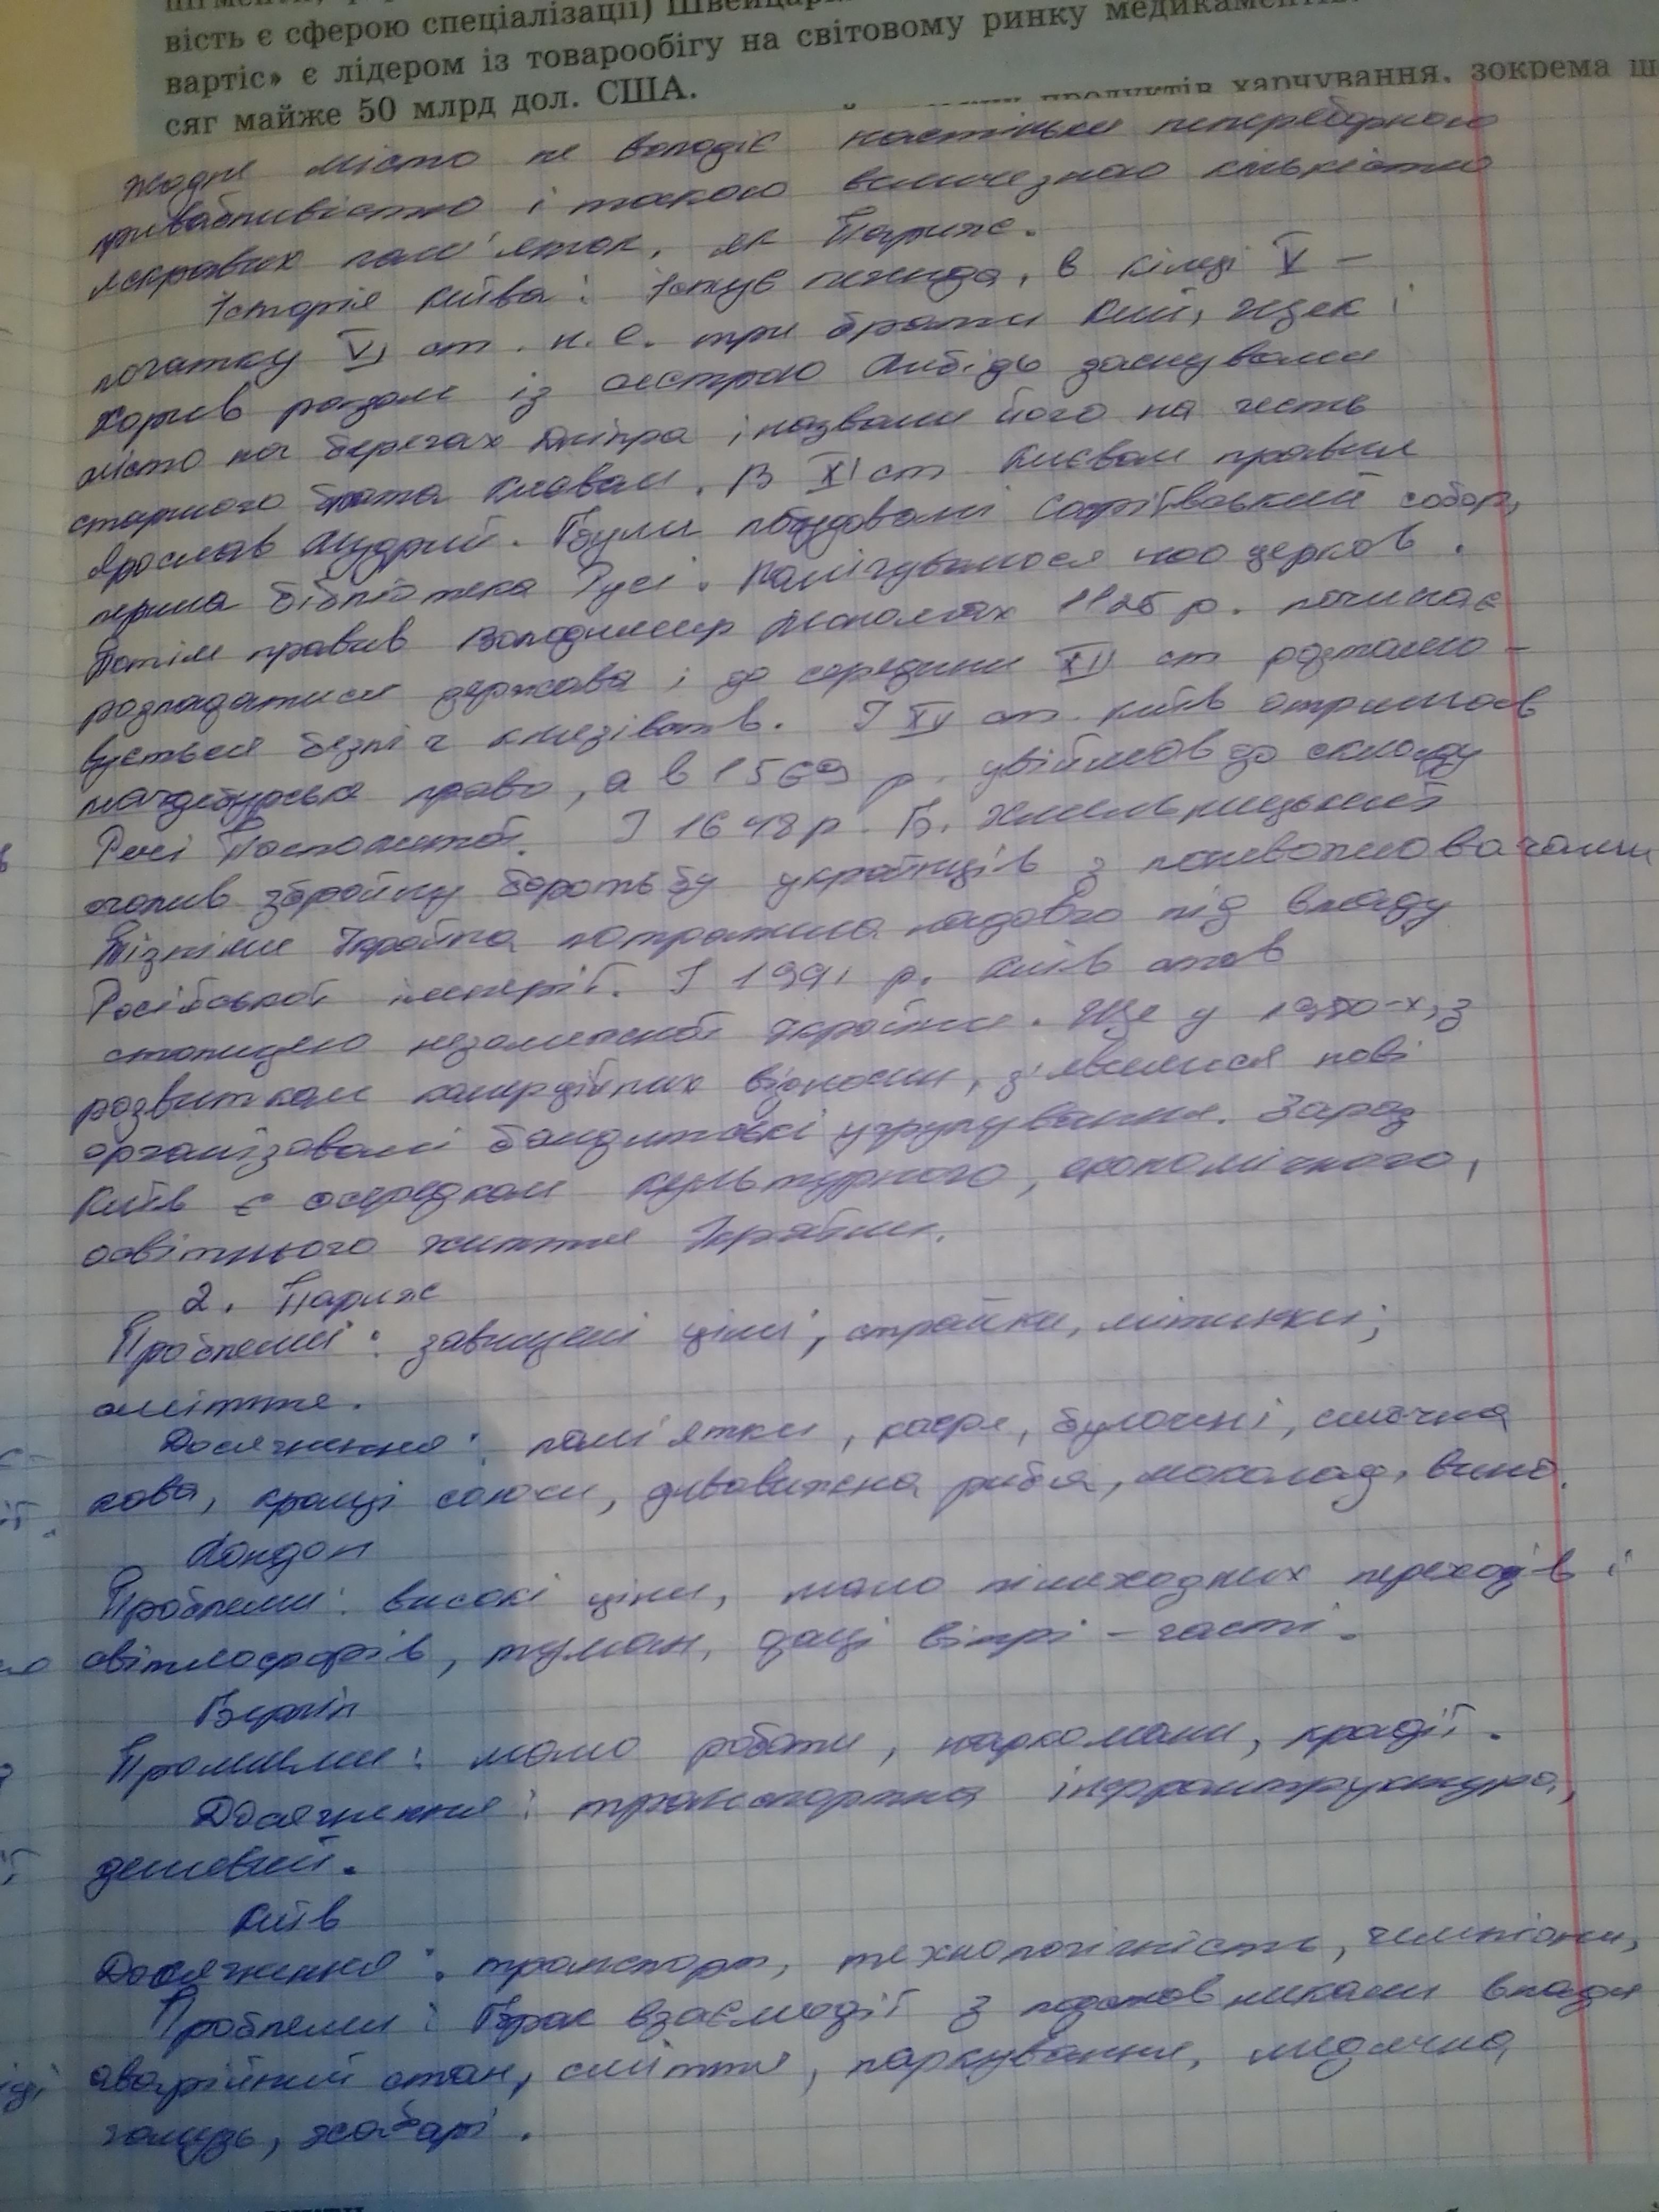 вість є сферою спеціалізації) Швейцарії
вартіс» є лідером із товарообігу на світовому ринку медикаментів.
сяг майже 50 млрд дол. США.
продуктів харчування, зокрема
Жодне місто не володіє настільки неперебірною
привабливістю і такою величезною кількістю
яскравих пам'яток, як Париж.
Історія Києва: Існує легенда, в кінці V –
початку VI ст. н.е. три брати Кий, Щек і
Хорив разом із сестрою Либідь заснували
місто на берегах Дніпра і назвали його на честь
старшого брата Києвом. В XI ст Києвом правил
Ярослав Мудрий. Були побудовані Софіївський собор,
перша бібліотека Русі. Налічувалося 400 церков.
Потім правив Володимир Мономах 1125 р. починає
розпадатися держава і до середини XII ст розташо-
вується безліч князівств. У XV ст. Київ отримав
магдебурське право, а в 1569 р. увійшов до складу
Речі Посполитої. У 1648 р. Б. Хмельницький
очолив збройну боротьбу українців з поневолювачами
Пізніше Україна потрапила надовго під владу
Російської імперії. У 1991 р. Київ став
столицею незалежної України. Ще у 1980-х, з
розвитком комерційних відносин, з'явилися нові
організовані бандитські угрупування. Зараз
Київ є осередком культурного, економічного,
освітнього життя України.
2. Париж
Проблеми: завищені ціни, страйки, мітинки;
сміття.
Досягнення: пам'ятки, кафе, булочні, смачна
кава, кращі соуси, дивовижна риба, шоколад, вино.
Лондон
Проблеми: високі ціни, мало пішеходних переходів і
світлофорів, туман, дощі вітрі – часті.
Берлін
мало роботи, наркомани, крадії.
Досягнення: транспортна інфраструктура,
дешевий.
Київ
Досягнення: транспорт, технологічність, чемпіони,
Проблеми: Брак взаємодії з представниками влади
аварійний стан, сміття, паркування, медична
галузь, хабарі.